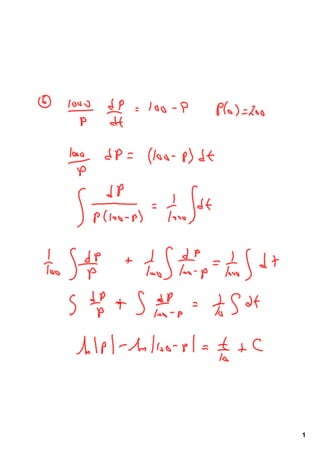 ⑥ 1000/P dP/dt = 100 - P P(0)=200
1000/P dP = (100 - P) dt
∫ dP/P(100-P) = 1/1000 ∫ dt
1/100 ∫ dP/P + 1/100 ∫ dP/100-P = 1/1000 ∫ dt
∫ dP/P + ∫ dP/100-P = 1/10 ∫ dt
ln|P| - ln|100-P| = t/10 + C
1